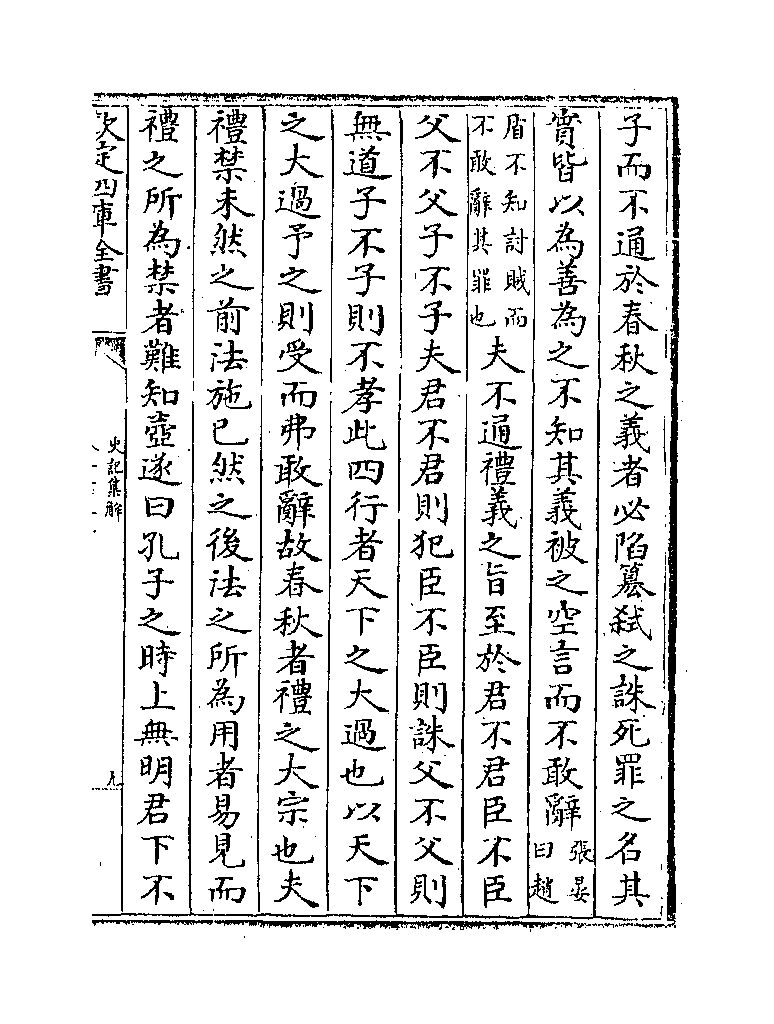 子而不通於春秋之義者必陷簒弑之誅死罪之名其
實皆以為善為之不知其義被之空言而不敢辭張晏曰趙
盾不知討賊而不敢辭其罪也夫不通禮義之旨至於君不君臣不臣
父不父子不子夫君不君則犯臣不臣則誅父不父則
無道子不子則不孝此四行者天下之大過也以天下
之大過予之則受而弗敢辭故春秋者禮之大宗也夫
禮禁未然之前法施已然之後法之所為用者易見而
禮之所為禁者難知壺遂曰孔子之時上無明君下不
欽定四庫全書
史記集解
九